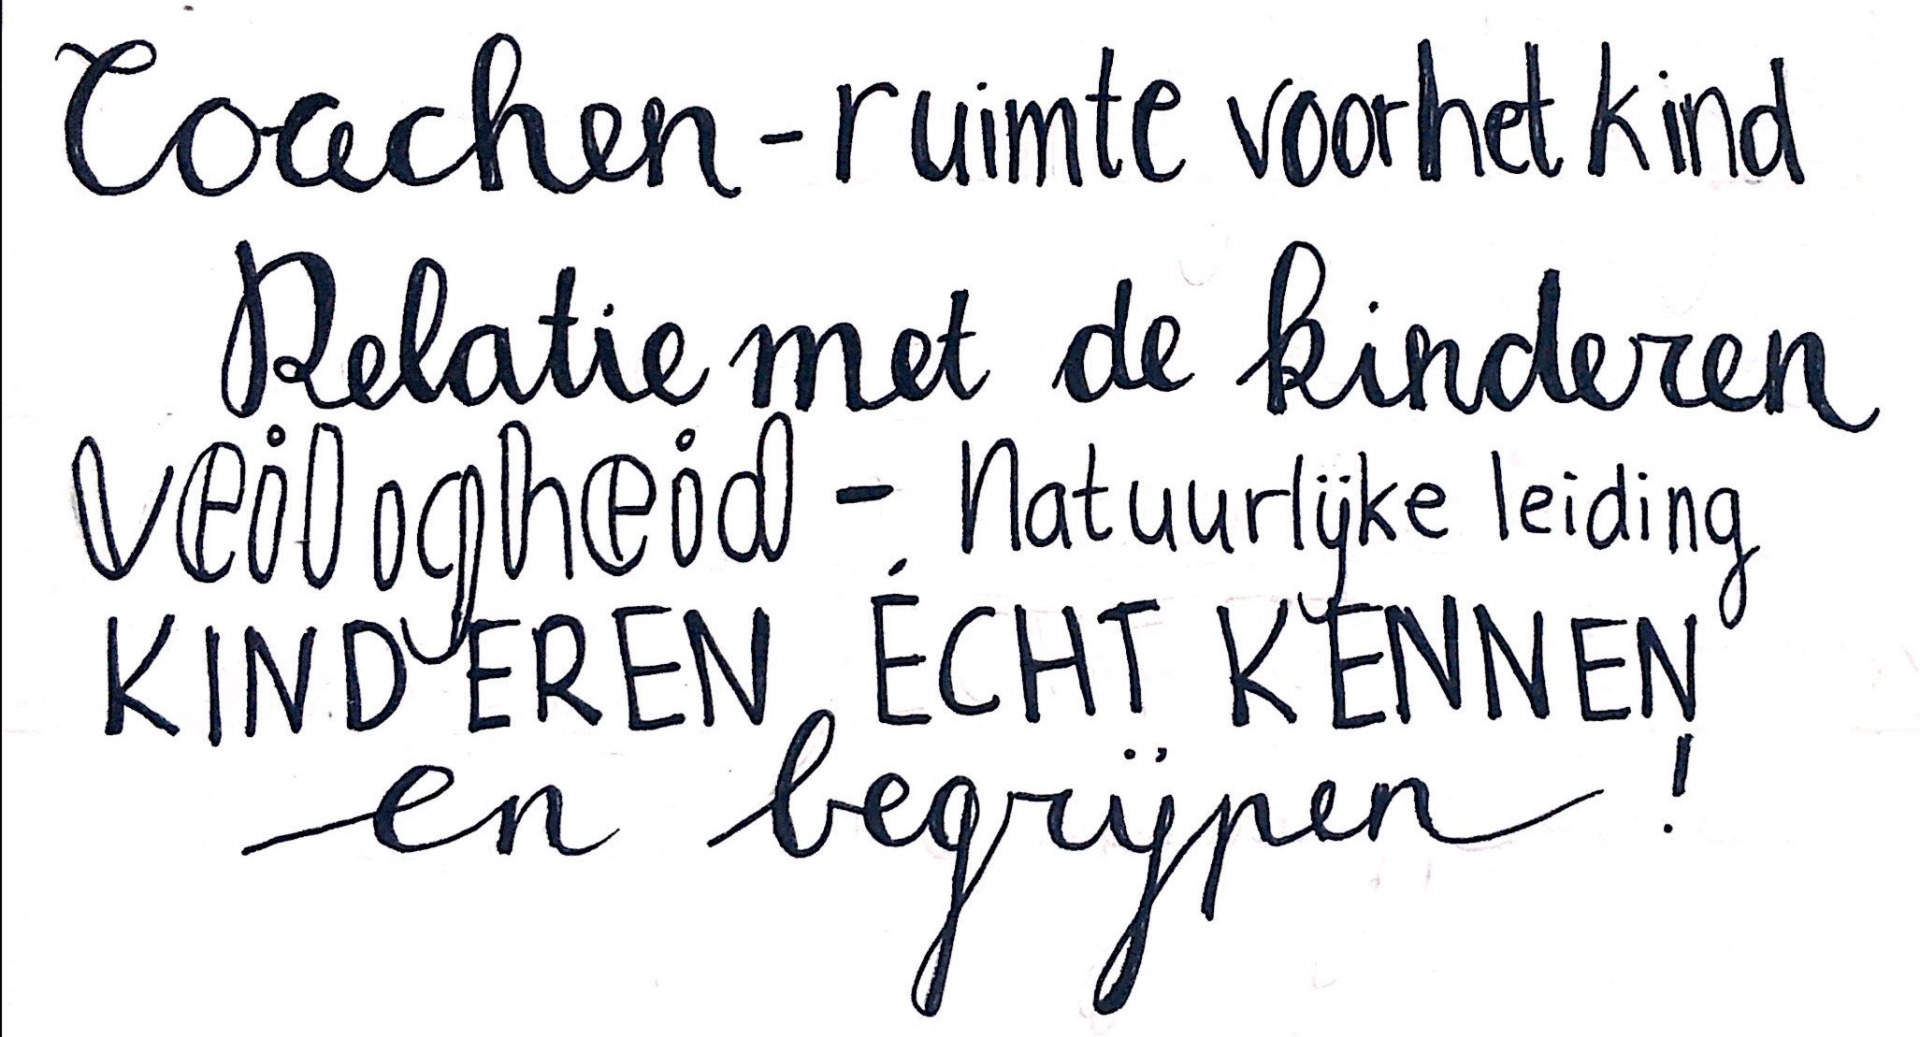 Coachen - ruimte voor het kind
Relatie met de kinderen
veiligheid - Natuurlijke leiding
KINDEREN ÉCHT KENNEN
en begrijpen!